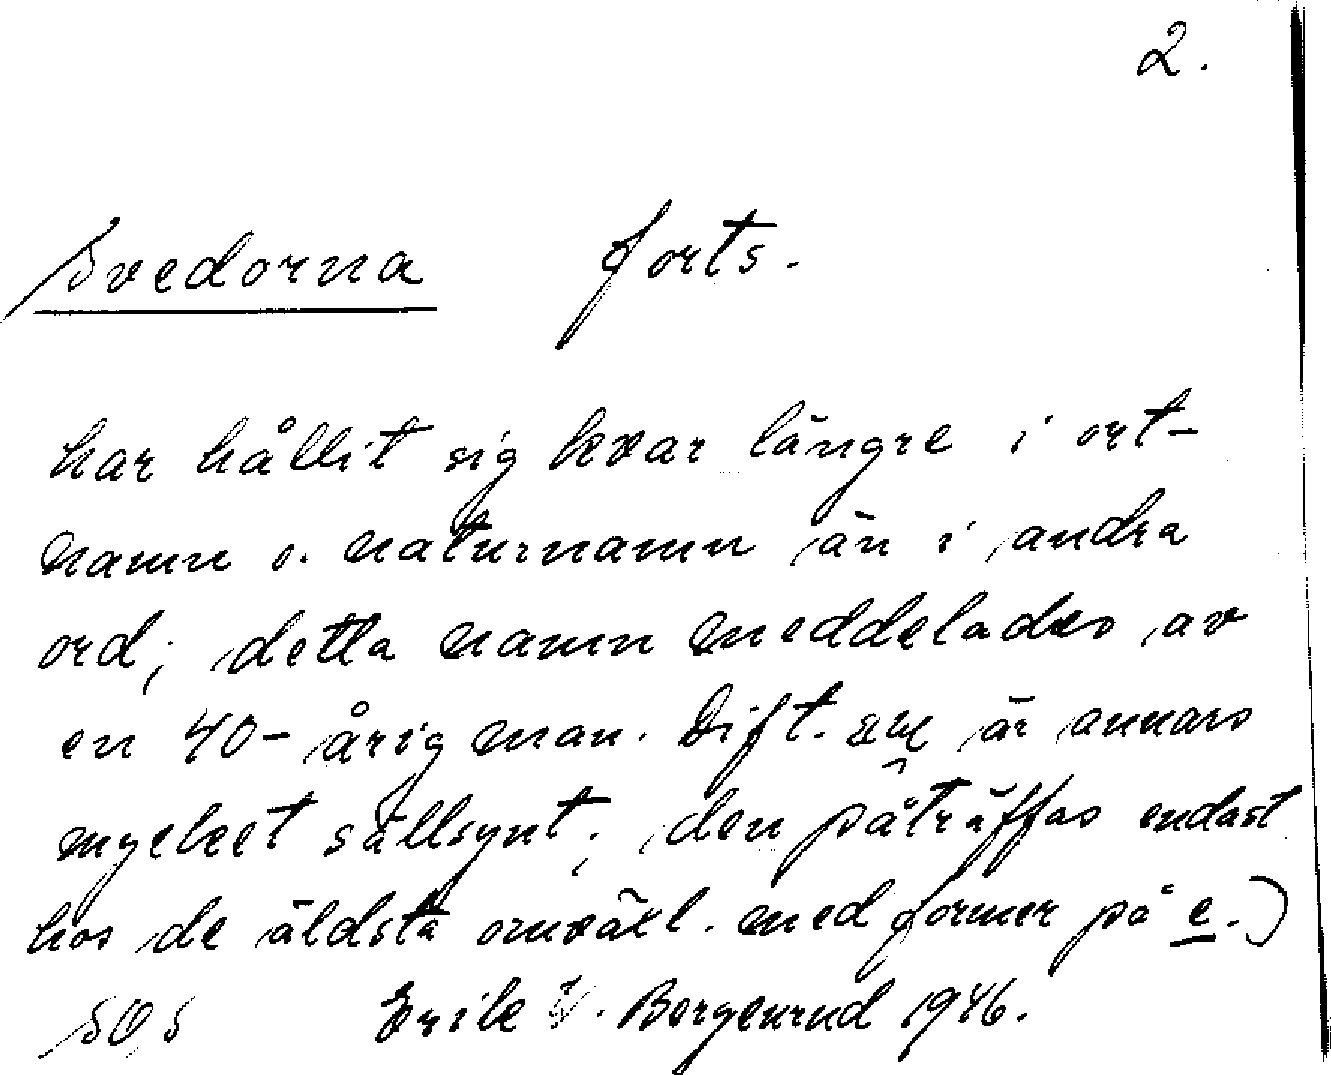 2.
Svedorna forts.
har hållit sig kvar längre i ort-
namn o. naturnamn än i andra
ord; detta namn meddelades av
en 40-årig man. Dift. är annars
mycket sällsynt; den påträffas endast
hos de äldsta omväxl. med former på e.)
Erik Bergenrud 1946.